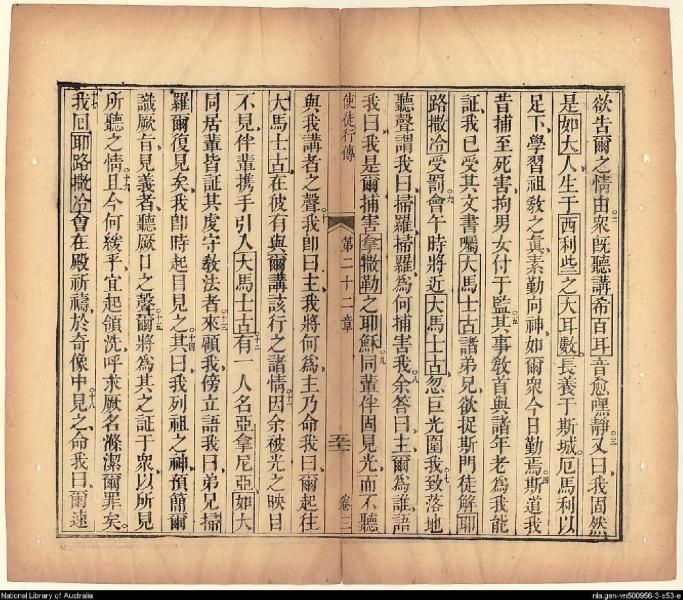 欲告爾之情由二衆旣聽講希百耳音愈嘿靜三又曰我固然
是如大人生于西利些之大耳數長養于斯城厄馬利以
足下學習祖敎之眞素勤向神如爾衆今日勤焉四斯道我
昔捕至死害拘男女付于監五其事敎首與諸年老爲我能
証我已受其文書囑大馬士古諸弟兄欲捉斯門徒解耶
路撒冷受罰六會午時將近大馬士古忽巨光圍我七致落地
聽聲謂我曰掃羅掃羅爲何捕害我八余答曰主爾爲誰語
我曰我是爾捕害拿撒勒之耶穌九同輩伴固見光而不聽
使徒行傳 第二十二章 卷三
與我講者之聲十我卽曰主我將何爲主乃命我曰爾起往
大馬士古在彼有與爾講該行之諸情十一因余被光之映目
不見伴輩携手引入大馬士古十二有一人名亞拿尼亞如大
同居輩皆証其虔守敎法者十三來顧我傍立語我曰弟兄掃
羅爾復見矣我卽時起目見之十四其曰我列祖之神預簡爾
識厥旨見義者聽厥口之聲十五爾將爲其之証于衆以所見
所聽之情十六且今何緩乎宜起領洗呼求厥名滌潔爾罪矣
十七我回耶路撒冷會在殿祈禱於奇像中見之十八命我曰爾速
National Library of Australia
nla.gen-vn500956-3-s53-e